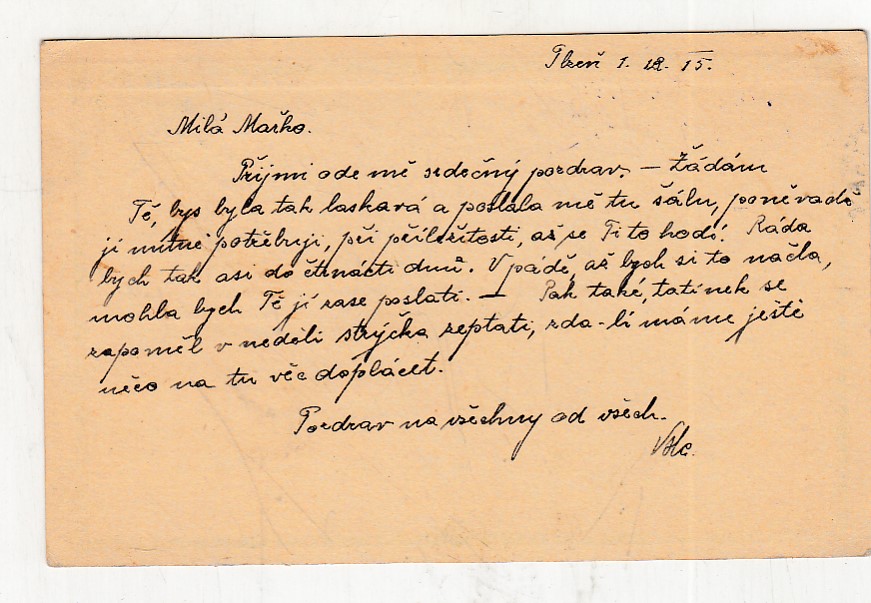 Plzeň 1. 12. 15.
Milá Mařko.
Přijmi ode mě srdečný pozdrav. — Žádám
Tě, bys byla tak laskavá a poslala mě tu šálu, poněvadč
ji nutně potřebuji, při příležitosti, až se Ti to hodí. Ráda
bych tak asi do čtrnácti dnů. V pádě, až bych si to načla,
mohla bych Tě jí zase poslati. — Pak také, tatínek se
zapoměl v neděli strýčka zeptati, zda-li máme ještě
něco na tu věc doplácet.
Pozdrav na všechny od všech.